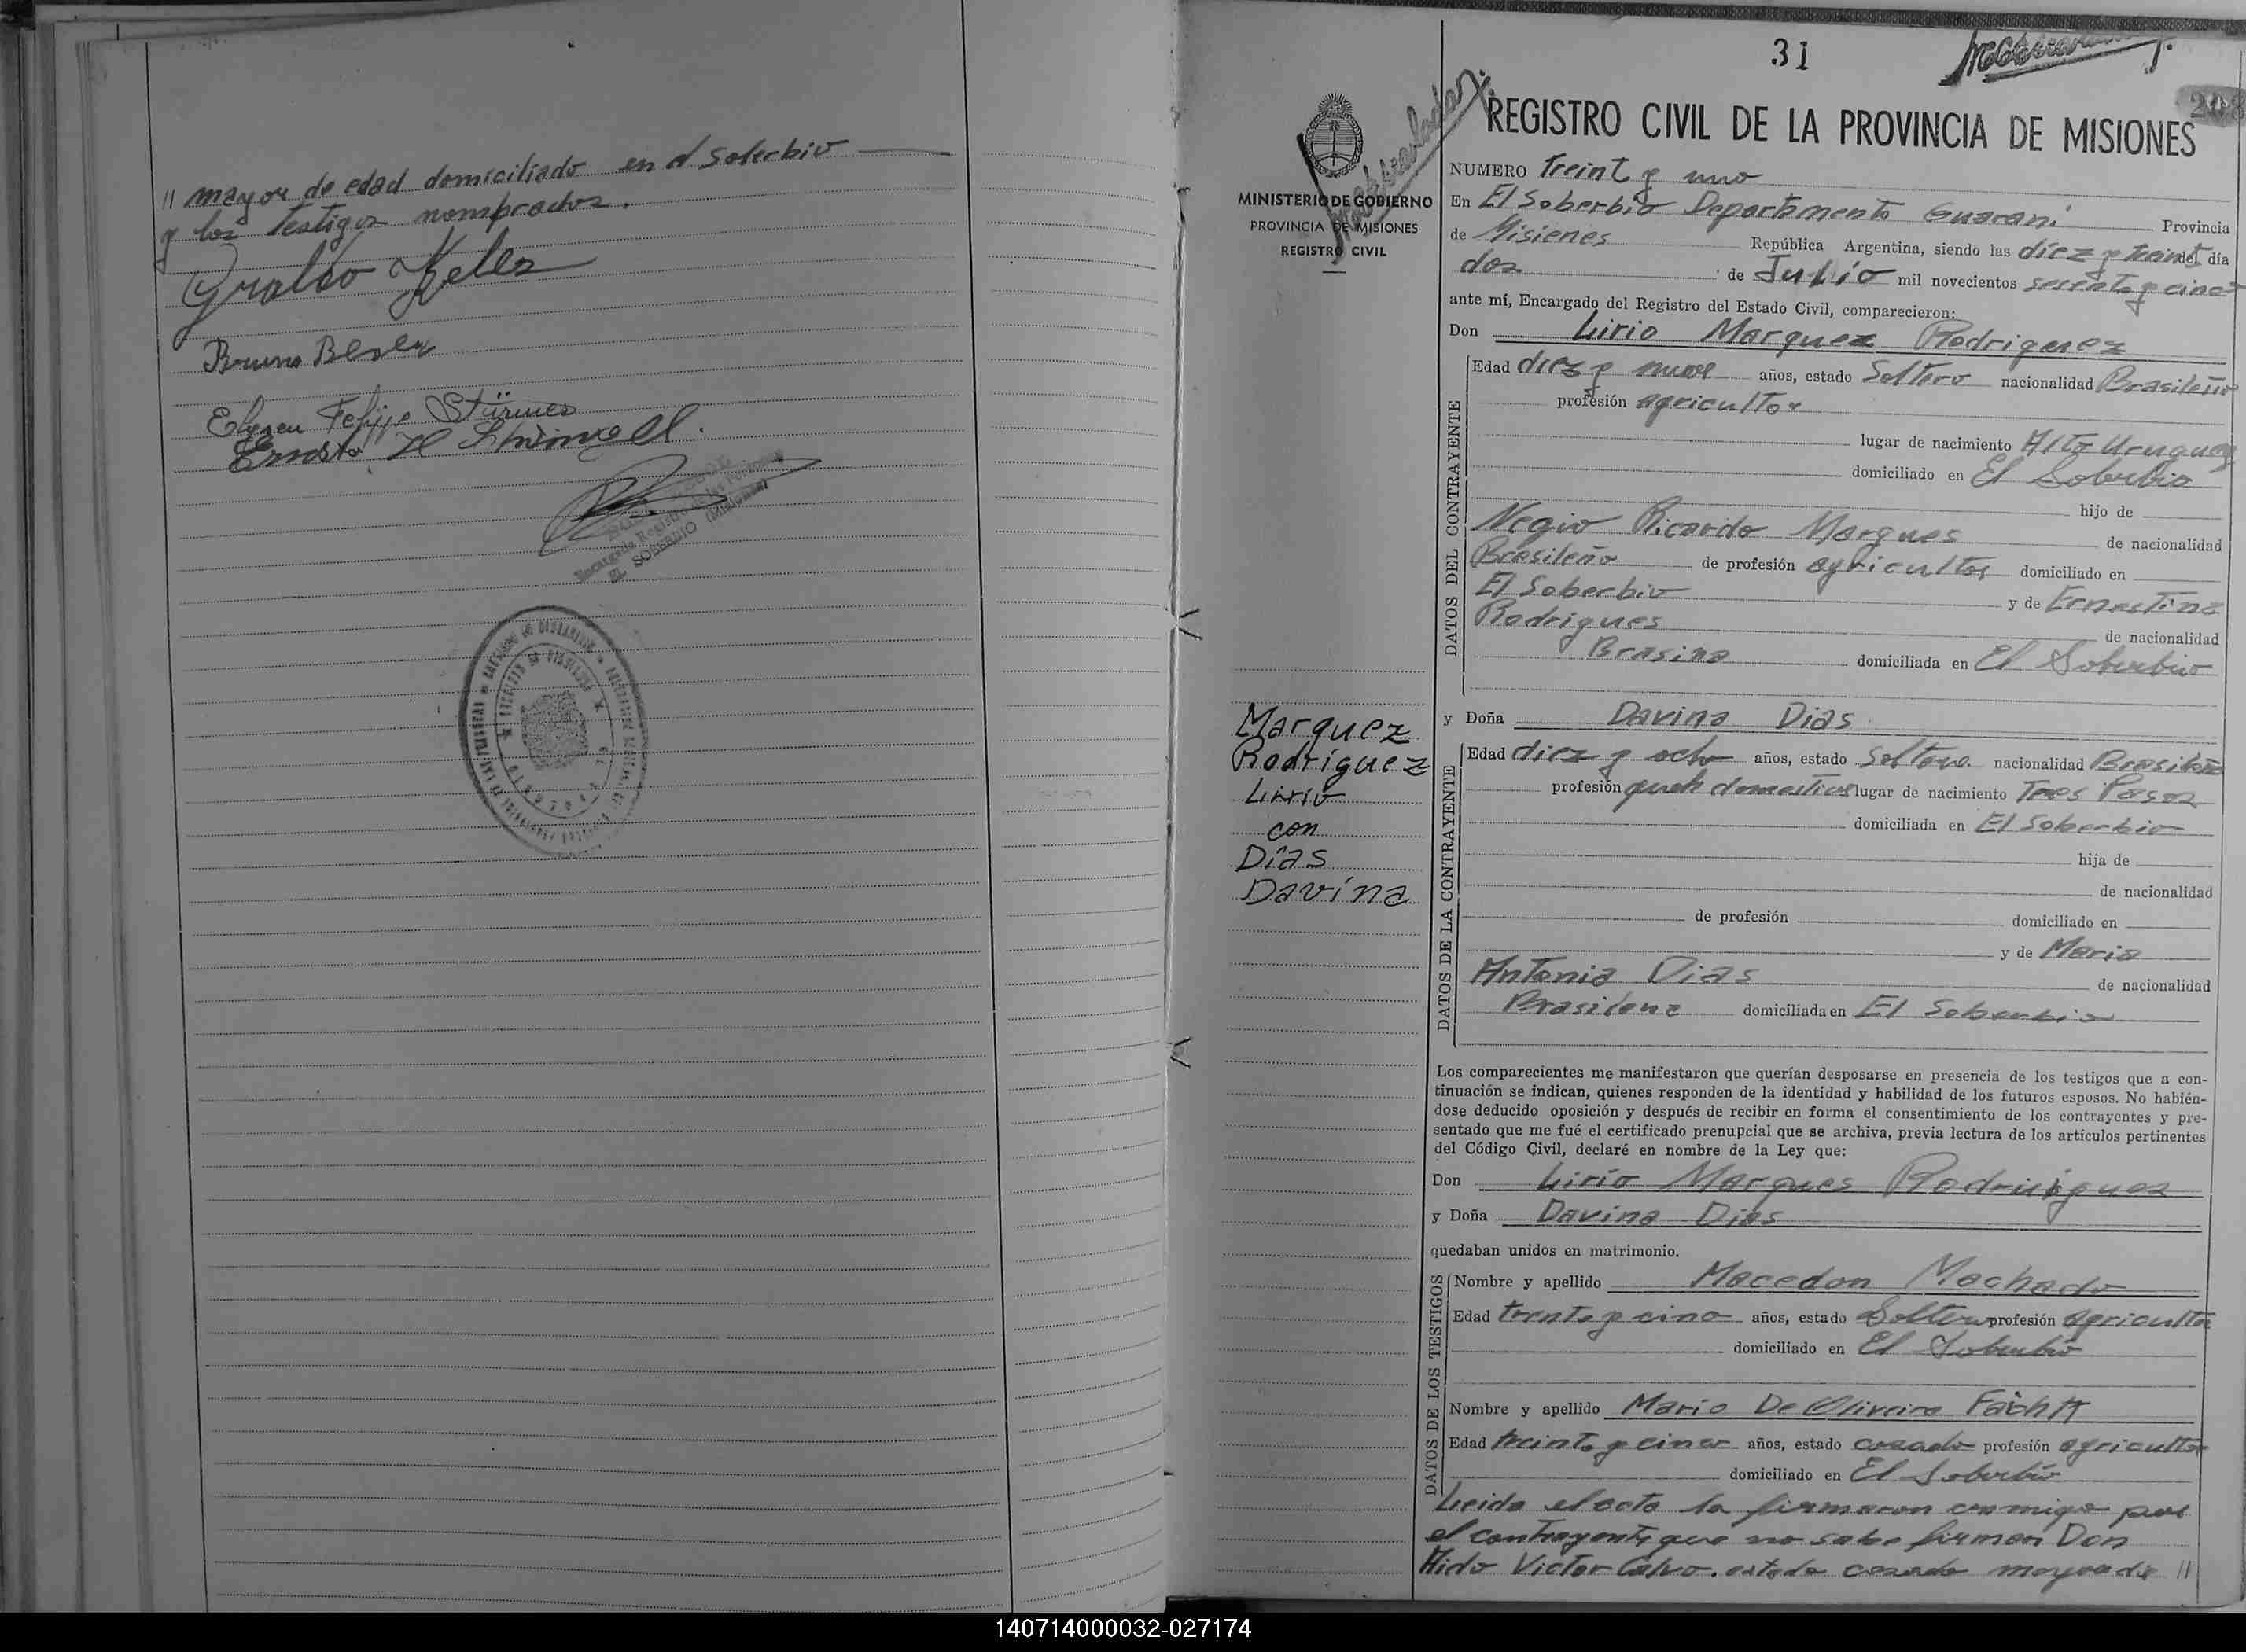 // mayor de edad domiciliado en el Soberbio
y los testigos nombrados.
Keller
Bruno
Felippe Stürmer
Ernesto H
Encargado Registro
EL SOBERBIO (Misiones)
31
208
MINISTERIO DE GOBIERNO
PROVINCIA DE MISIONES
REGISTRO CIVIL
Marquez
Rodriguez
Lirio
con
Días
Davína
REGISTRO CIVIL DE LA PROVINCIA DE MISIONES
NUMERO Treint y uno
En El Soberbio Departamento Guarani Provincia
de Misiones República Argentina, siendo las diez y treinta del día
dos de Julio mil novecientos sesenta y cinco
ante mí, Encargado del Registro del Estado Civil, comparecieron:
Don Lirio Marquez Rodriguez
DATOS DEL CONTRAYENTE
Edad diez y nueve años, estado Soltero nacionalidad Brasileño
profesión agricultor
lugar de nacimiento Alto Uruguay
domiciliado en El Soberbio
hijo de
Negio Ricardo Marques de nacionalidad
Brasileño de profesión agricultor domiciliado en
El Soberbio y de Ernestina
Rodrigues de nacionalidad
Brasina domiciliada en El Soberbio
y Doña Davina Dias
DATOS DE LA CONTRAYENTE
Edad diez y ocho años, estado Soltera nacionalidad Brasileña
profesión domesticos lugar de nacimiento Tres Pasos
domiciliada en El Soberbio
hija de
de nacionalidad
de profesión domiciliado en
y de Maria
Antonia Dias de nacionalidad
Brasilena domiciliada en El Soberbio
Los comparecientes me manifestaron que querían desposarse en presencia de los testigos que a con-
tinuación se indican, quienes responden de la identidad y habilidad de los futuros esposos. No habién-
dose deducido oposición y después de recibir en forma el consentimiento de los contrayentes y pre-
sentado que me fué el certificado prenupcial que se archiva, previa lectura de los artículos pertinentes
del Código Civil, declaré en nombre de la Ley que:
Don Lirio Marques Rodriguez
y Doña Davina Dias
quedaban unidos en matrimonio.
DATOS DE LOS TESTIGOS
Nombre y apellido Macedon Machado
Edad trenta y cinco años, estado Soltero profesión agricultor
domiciliado en El Soberbio
Nombre y apellido Mario De Oliveira
Edad treinta y cinco años, estado casado profesión agricultor
domiciliado en El Soberbio
Leida el acta la firmaron conmigo por
el contrayente que no sabe firmar Don
Victor Calvo. estado casado mayor de //
140714000032-027174